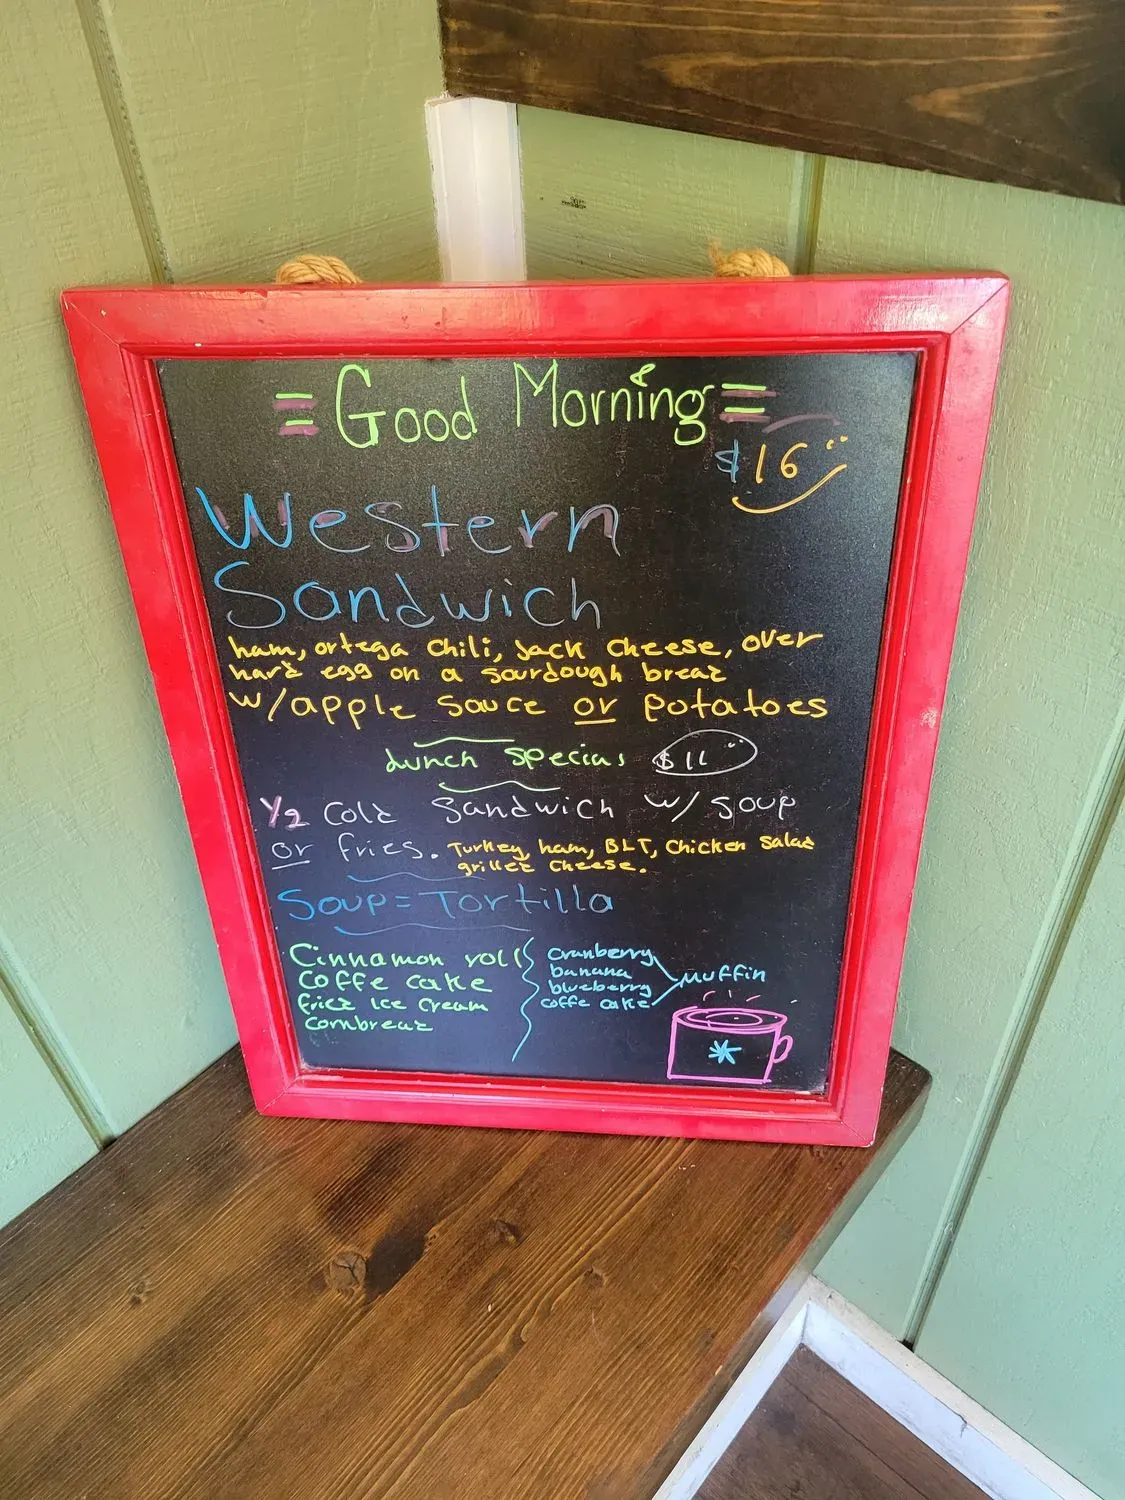 = Good Morning =
$16
Western
Sandwich
ham, ortega chili, Jack cheese, over
hard egg on a sourdough bread
w/apple sauce or potatoes
Lunch special $11
1/2 Cold Sandwich w/ soup
or fries. Turkey, ham, BLT, Chicken Salad
grilled cheese.
Soup = Tortilla
Cinnamon roll
Coffe cake
fried Ice Cream
Cornbread
cranberry
banana
blueberry
coffe cake
Muffin